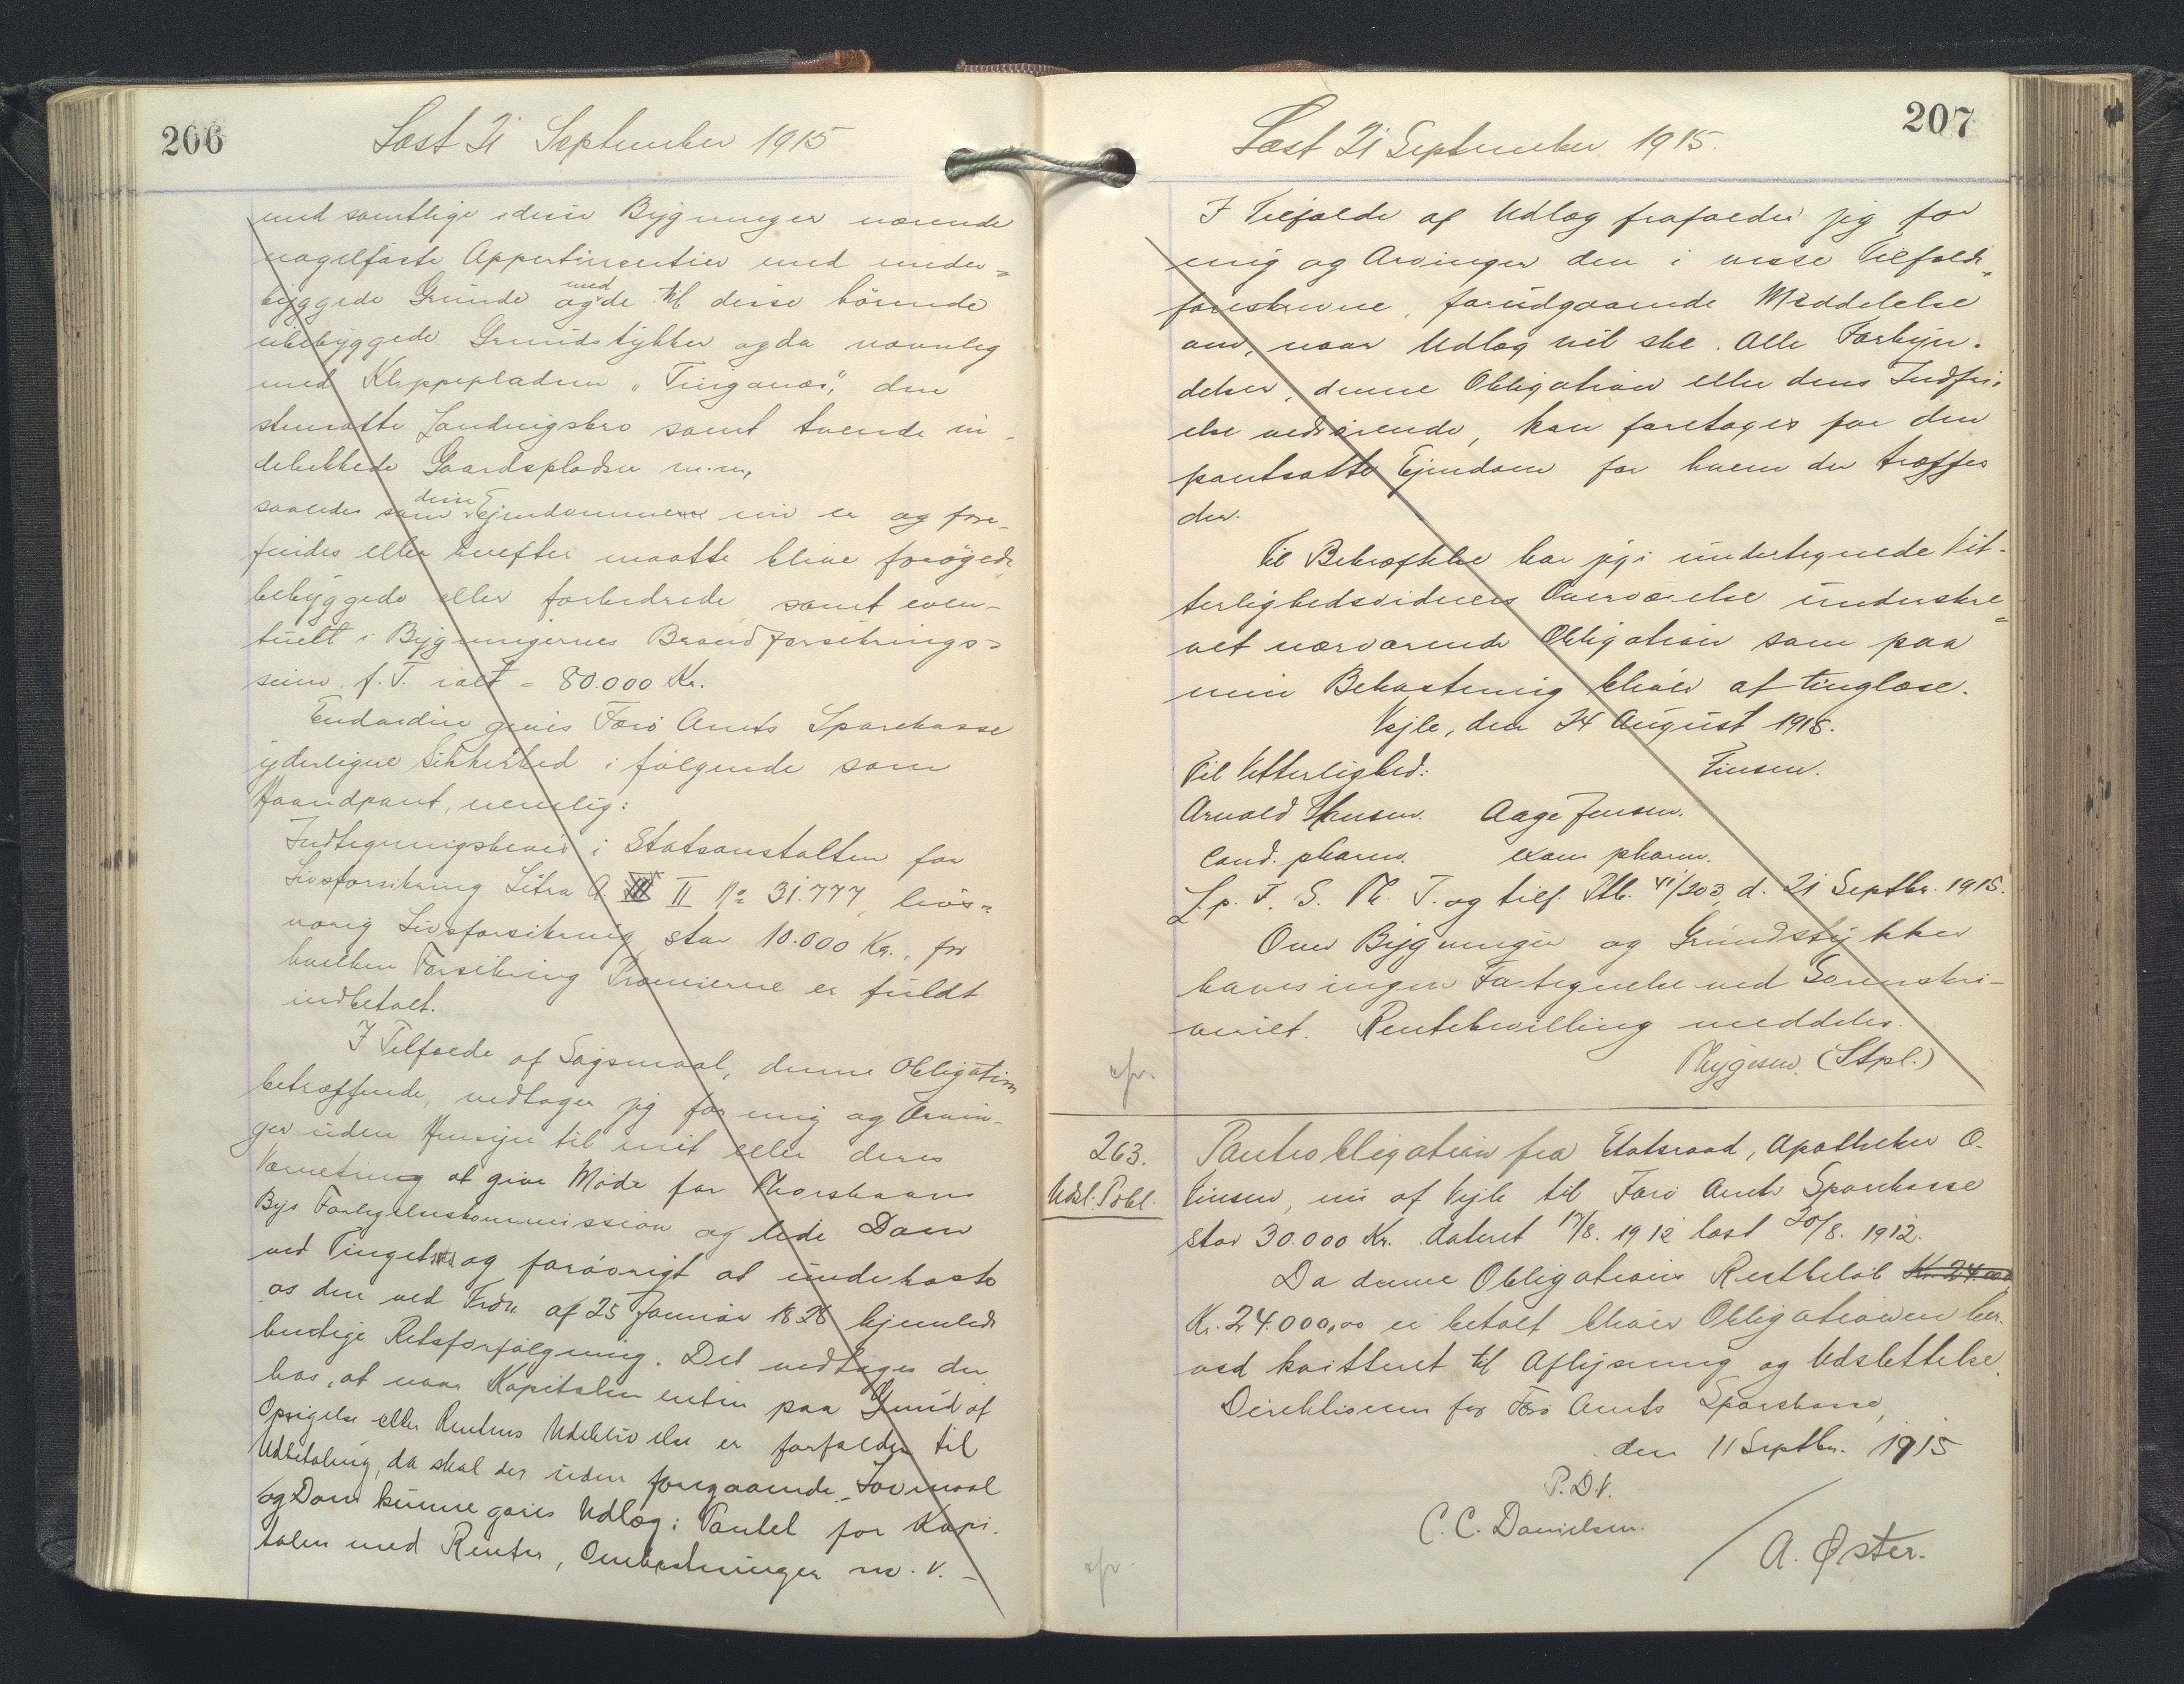 206
Læst 21 September 1915
med samtlige i disse Bygninger værende
nagelfaste Appertinentier med under-
byggede Grunde og med de til disse hörende
ubebyggede Grundstykker og da navnlig
med Klippepladsen "Tinganæs", den
stensatte Landingsbro samt tvende in-
delukkede Gaardspladser m.m.
saaledes som disse Ejendomme nu er og fore-
findes eller herefter maatte blive forøgede,
bebyggede eller forbedrede, samt even-
tuelt i Bygningernes Brandforsikrings-
sum f. T. ialt = 80.000 Kr.
Endvidere gives Færö Amts Sparekasse
yderligere Sikkerhed i følgende som
Haandpant, nemlig:
Indtegningsbevis i Statsanstalten for
Livsforsikring Litra A. II No 31.777, livs-
varig Livsforsikring stor 10.000 Kr., for
hvilken Forsikring Præmierne er fuldt
indbetalt.
I Tilfælde af Søgsmaal, denne Obligation
betræffende, vedtager jeg for mig og Arvin-
ger uden Hensyn til mit eller deres
Værneting at give Møde for Thorshavns
Bys Forligelseskommission og lide Dom
ved Tinget og forøvrigt at underkaste
os den ved Frdn. af 25 Januar 1828 hjemlede
hurtige Retsforfølgning. Det vedtages der-
hos, at naar Kapitalen enten paa Grund af
Opsigelse eller Rentens Udeblivelse er forfalden til
Udbetaling, da skal der uden foregaaende Lovmaal
og Dom kunne gøres Udlæg i Pantet for Kapi-
talen med Renter, Omkostninger m. v. -
207
Læst 21 September 1915.
I Tilfælde af Udlæg frafalder jeg for
mig og Arvinger den i visse Tilfælde
foreskrevne, forudgaaende Meddelelse
om, naar Udlæg vil ske. Alle Forkyn-
delser, denne Obligation eller dens Indfri-
else vedrørende, kan foretages paa den
pantsatte Ejendom for hvem der træffes
der.
Til Bekræftelse har jeg i undertegnede Vit-
terlighedsvidners Overværelse underskre-
vet nærværende Obligation som paa
min Bekostning bliver at tinglæse.
Vejle, den 24 August 1915.
Til Vitterlighed: Finsen.
Arnold Hansen. Aage Jensen.
Cand. pharm. exam pharm.
L. p. T. S. Th. T. og tilf. Ptb. VI/203, d. 21 Septbr. 1915.
Over Bygninger og Grundstykker
haves ingen Fortegnelse ved Sorenskri-
veriet. Rentebevilling meddeles.
Thygesen. (Stpl.)
cfr.
263.
Udsl. Pobl.
Pantobligation fra Etatsraad, Apotheker O.
Finsen, nu af Vejle til Færö Amts Sparekasse
stor 30.000 Kr. dateret 17/8. 1912 læst 20/8. 1912.
Da denne Obligations Restbeløb Kr. 24.000
Kr. 24.000,00 er betalt bliver Obligationen her-
ved kvitteret til Aflysning og Udslettelse.
Direktionen for Færö Amts Sparekasse,
den 11 Septbr. 1915
P.D.V.
C. C. Danielsen.
/ A. Øster.
cfr.